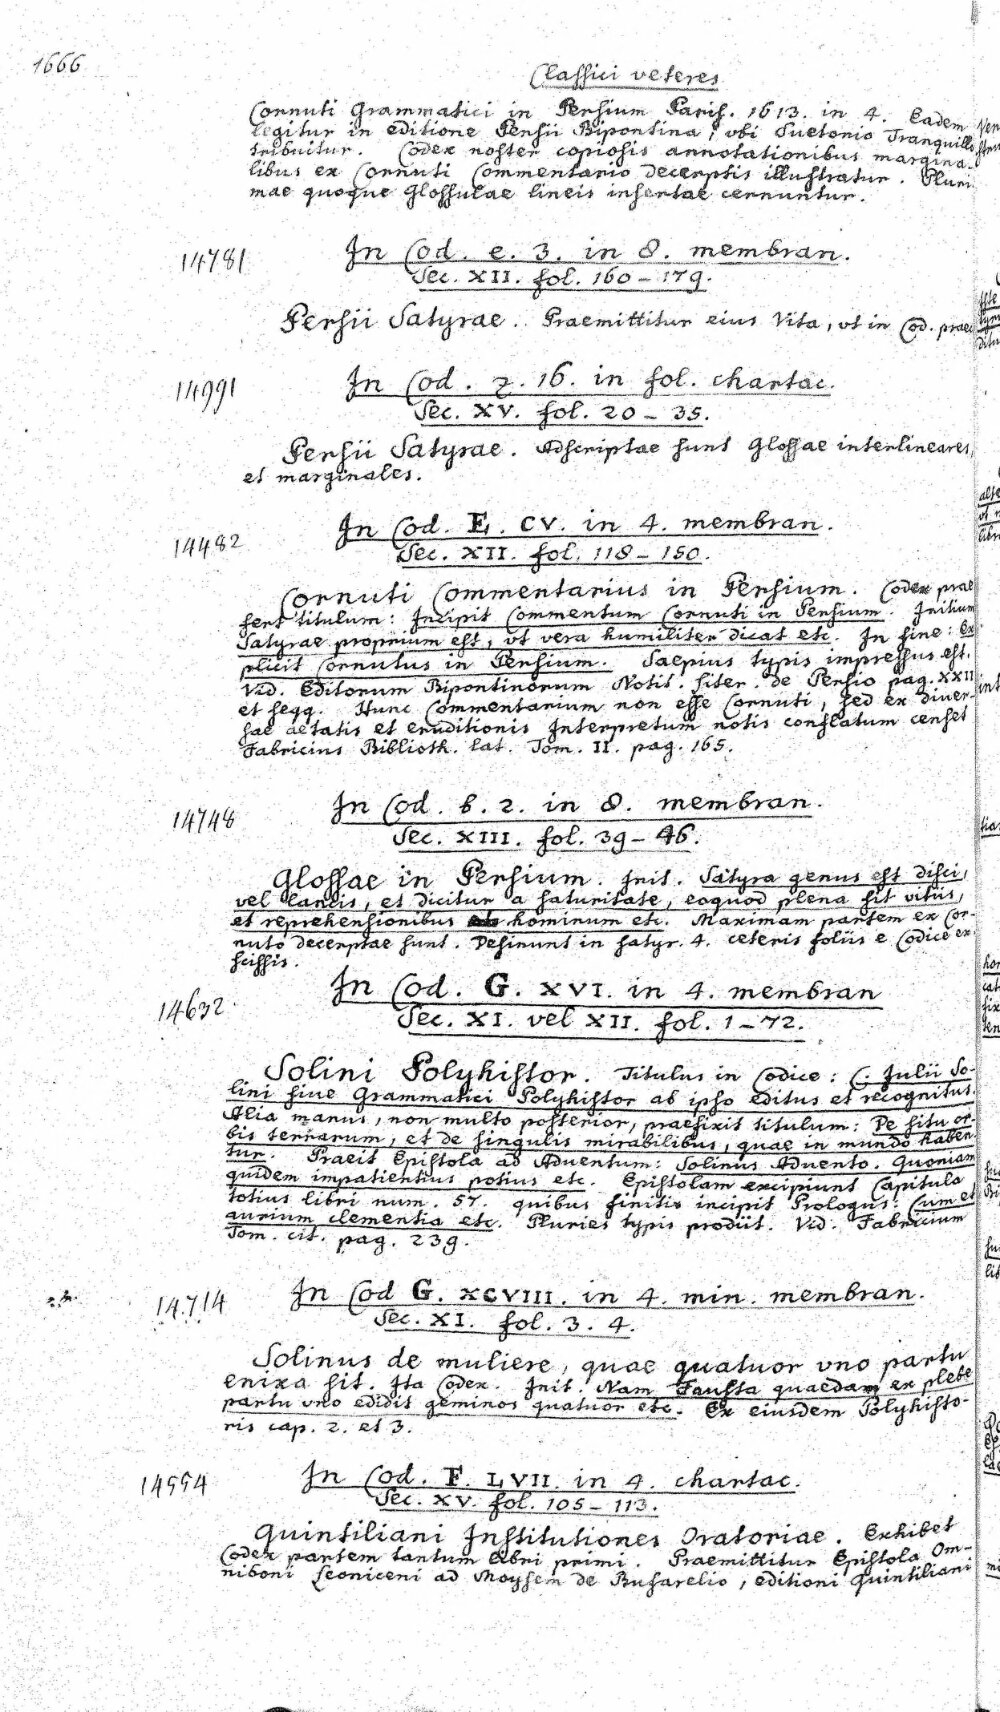 1666
Classici veteres
Cornuti Grammatici in Persium Paris. 1613. in 4. Eadem
legitur in editione Persii Bipontina, vbi Suetonio Tranquillo
tribuitur. Codex noster copiosis annotationibus margina-
libus ex Cornuti Commentario decerptis illustratur. Pluri
mae quoque Glossulae lineis insertae cernuntur.
14781
In Cod. e. 3. in 8. membran.
Sec. XII. fol. 160-179.
Persii Satyrae. Praemittitur eius Vita, vt in Cod. praec
14991
In Cod. z. 16. in fol. chartac.
Sec. XV. fol. 20-35.
Persii Satyrae. Adscriptae sunt Glossae interlineares,
et marginales.
14482
In Cod. E. CV. in 4. membran.
Sec. XII. fol. 118-150.
Cornuti Commentarius in Persium. Codex prae
fert titulum: Incipit Commentum Cornuti in Persium. Initium
Satyrae proprium est, vt vera humiliter dicat etc. In fine: Ex
plicit Cornutus in Persium. Saepius typis impressus est.
Vid. Editorum Bipontinorum Notit. liter. de Persio pag. XXII
et seqq. Hunc Commentarium non esse Cornuti, sed ex diver-
sae aetatis et eruditionis Interpretum notis conflatum censet
Fabricius Biblioth. lat. Tom. II. pag. 165.
14748
In Cod. b. 2. in 8. membran.
Sec. XIII. fol. 39-46.
Glossae in Persium. Init. Satyra genus est disci,
vel lancis, et dicitur a saturitate, eoquod plena sit vitiis,
et reprehensionibus hominum etc. Maximam partem ex Cor-
nuto decerptae sunt. Desinunt in satyr. 4. ceteris foliis e Codice ex
scissis.
14632
In Cod. G. XVI. in 4. membran
Sec. XI. vel XII. fol. 1-72.
Solini Polyhistor. Titulus in Codice: C. Julii So-
lini sive Grammatici Polyhistor ab ipso editus et recognitus.
Alia manus, non multo posterior, praefixit titulum: De situ or
bis terrarum, et de singulis mirabilibus, quae in mundo haben
tur. Praeit Epistola ad Aduentum: Solinus Aduento. Quoniam
quidem impatientius potius etc. Epistolam excipiunt Capitula
totius libri num. 57. quibus finitis incipit Prologus: Cum et
aurium clementia etc. Pluries typis prodiit. Vid. Fabricium
Tom. cit. pag. 239.
14714
In Cod G. XCVIII. in 4. min. membran.
Sec. XI. fol. 3. 4.
Solinus de muliere, quae quatuor vno partu
enixa sit. Ita Codex. Init. Nam Fausta quaedam ex plebe
partu vno edidit geminos quatuor etc. Ex eiusdem Polyhisto-
ris cap. 2. et 3.
14554
In Cod. F. LVII. in 4. chartac.
Sec. XV. fol. 105-113.
Quintiliani Institutiones Oratoriae. Exhibet
Codex partem tantum libri primi. Praemittitur Epistola Om-
niboni Leoniceni ad Moysem de Busarelio, editioni Quintiliani